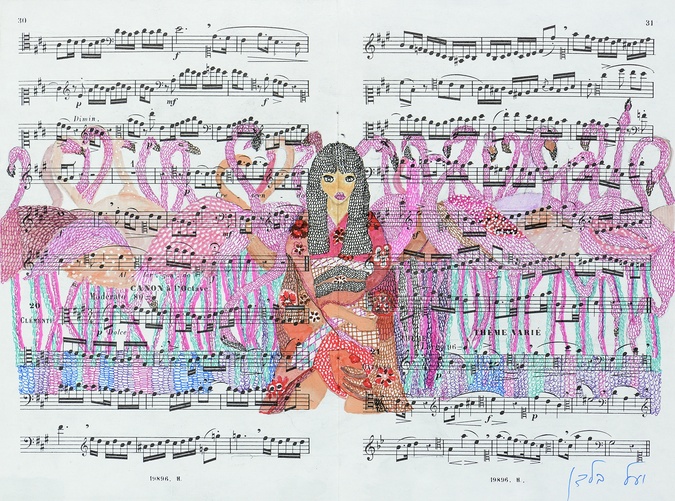 30
31
f
p
mf
f
Dimin.
p
p
mf
CANON à l'Octave
Moderato
20
CLEMENTI
p Dolce
THÈME VARIÉ
f
p
19896. H.
19896. H.
יעל בלבן